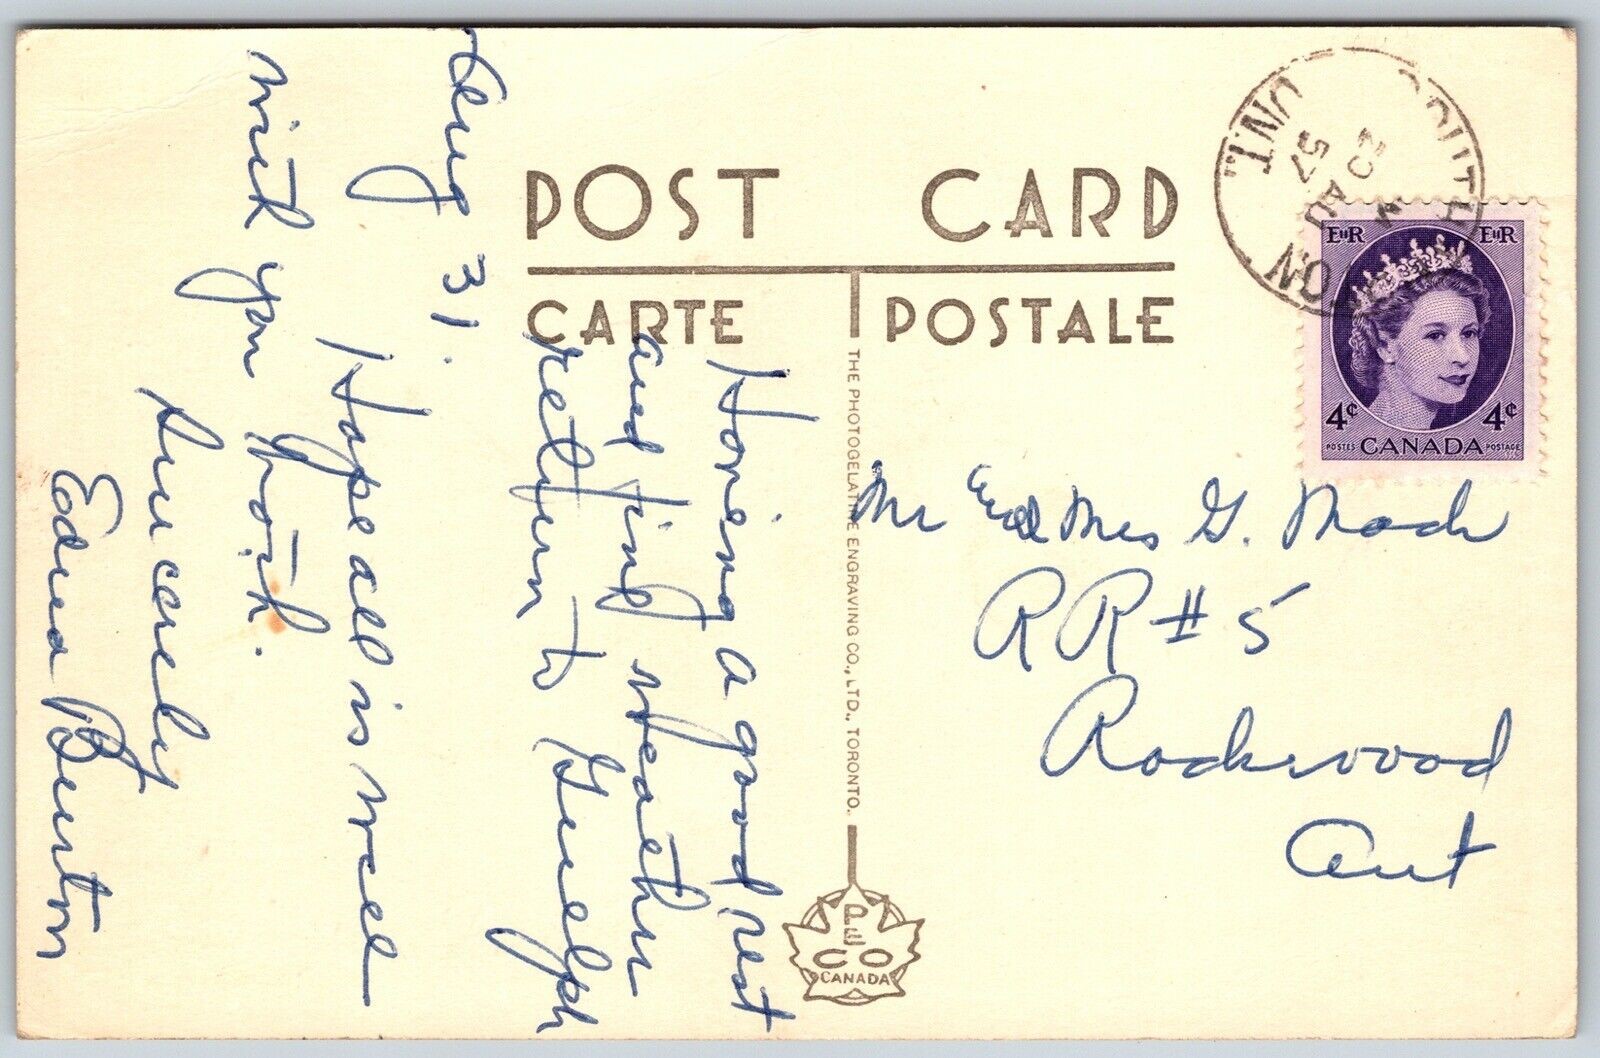 POST CARD
CARTE POSTALE
Having a good rest
and fine weather
return to Guelph
Aug 31.
Hope all is well
with you both.
Sincerely
Edna Burton
THE PHOTOGELATINE ENGRAVING CO., LTD., TORONTO.
PECO
CANADA
SOUTH
ON
ONT.
AU
57
EIIR EIIR
4¢ 4¢
POSTES CANADA POSTAGE
Mr and Mrs G.
RR # 5
Rockwood
Ont